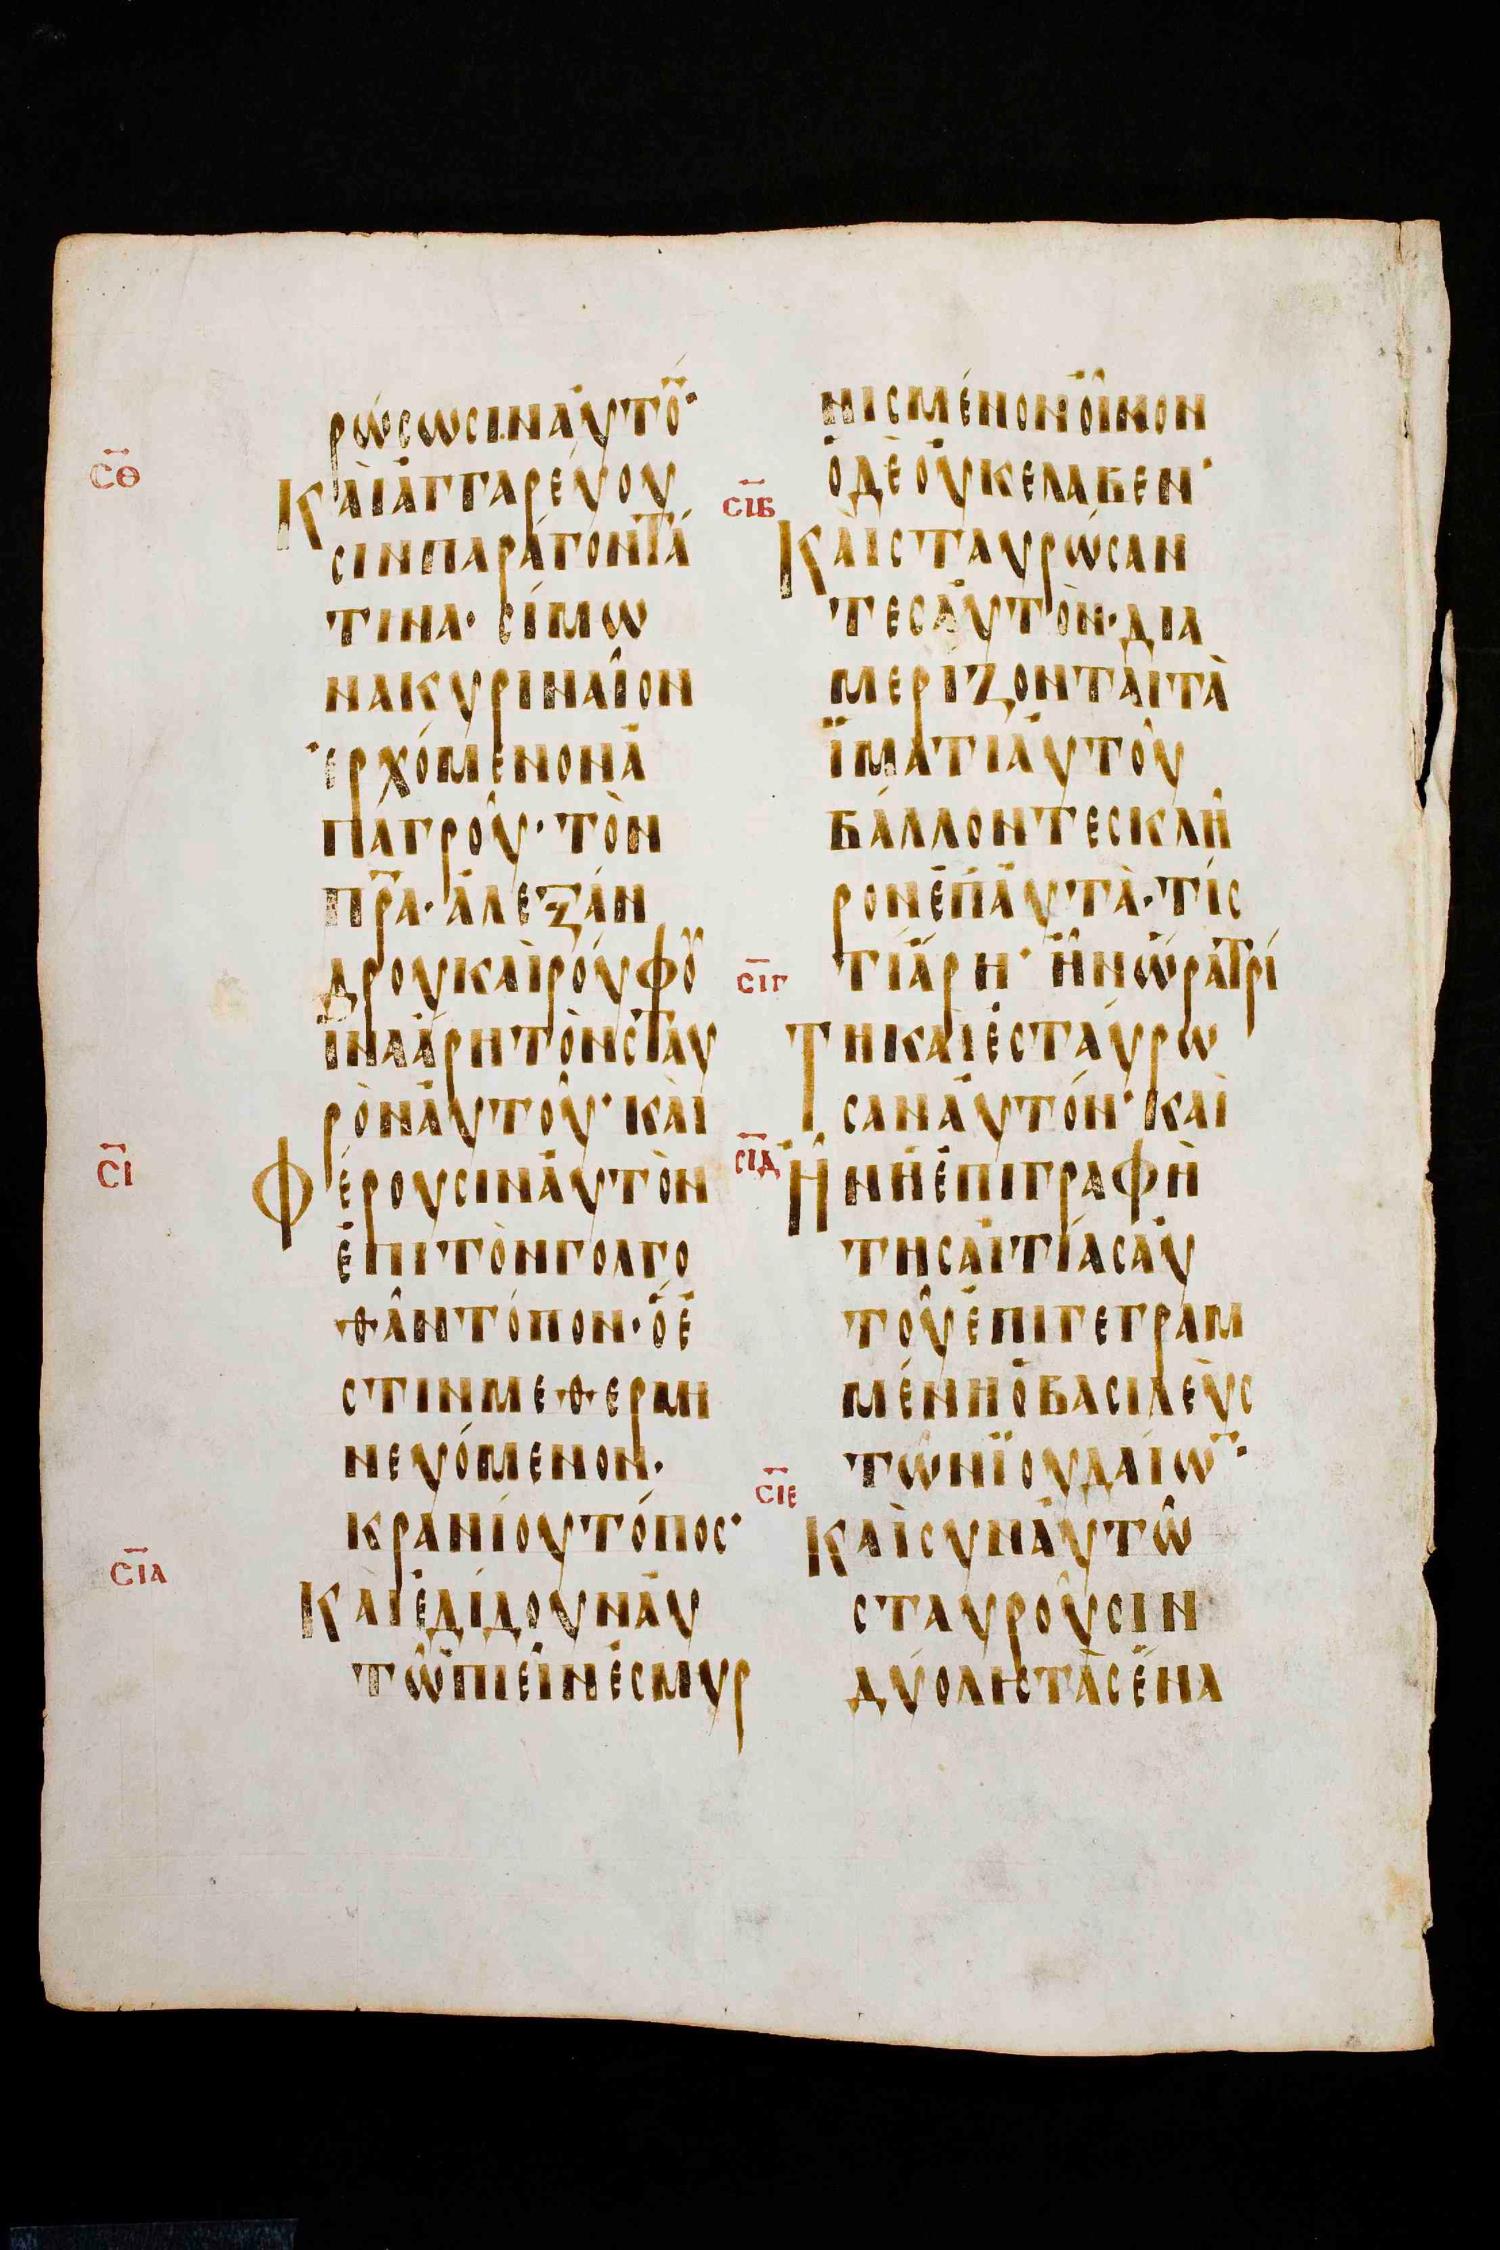 ρώσωσιναυτο̅·
σ̅θ
Καὶἀγγαρεύου
σινπαράγοντά
τινα· σίμω
νακυριναῖον
ἐρχόμενονἀ
πἀγροῦ· τὸν
πρ̅α· ἀλεξάν
δρουκαὶρούφου
ἵναἄρητὸνσταυ
ρὸναὐτοῦ· καὶ
σ̅ι
Φέρουσιναὐτὸν
ἐπιτὸνγολγο
θᾶντόπον· ὅἐ
στινμεθερμη
νευόμενον·
κρανίουτόπος·
σ̅ια
Καὶἐδίδουναὐ
τῶπιεῖνἐσμυρ
νισμένονοἶνον
ὁδὲοὐκελαβεν·
σ̅ιβ
Καὶσταυρώσαν
τεσαὐτὸν· δια
μερίζονταιτὰ
ἱματιαὐτοῦ
βάλλοντεςκλῆ
ρονἐπἀυτὰ· τίς
τίἄρη· ἦνὥρατρί
σ̅ιγ
Τηκαὶἐσταύρω
σαναὐτόν· καὶ
σ̅ιδ
Ηνἡἐπιγραφὴ
τησαἰτίασαὐ
τοῦἐπιγεγραμ
μένηὁβασιλεὺς
τῶνἰουδαίω̅·
σ̅ιε
Καὶσυναὐτῶ
σταυροῦσιν
δύολῃστὰσἕνα